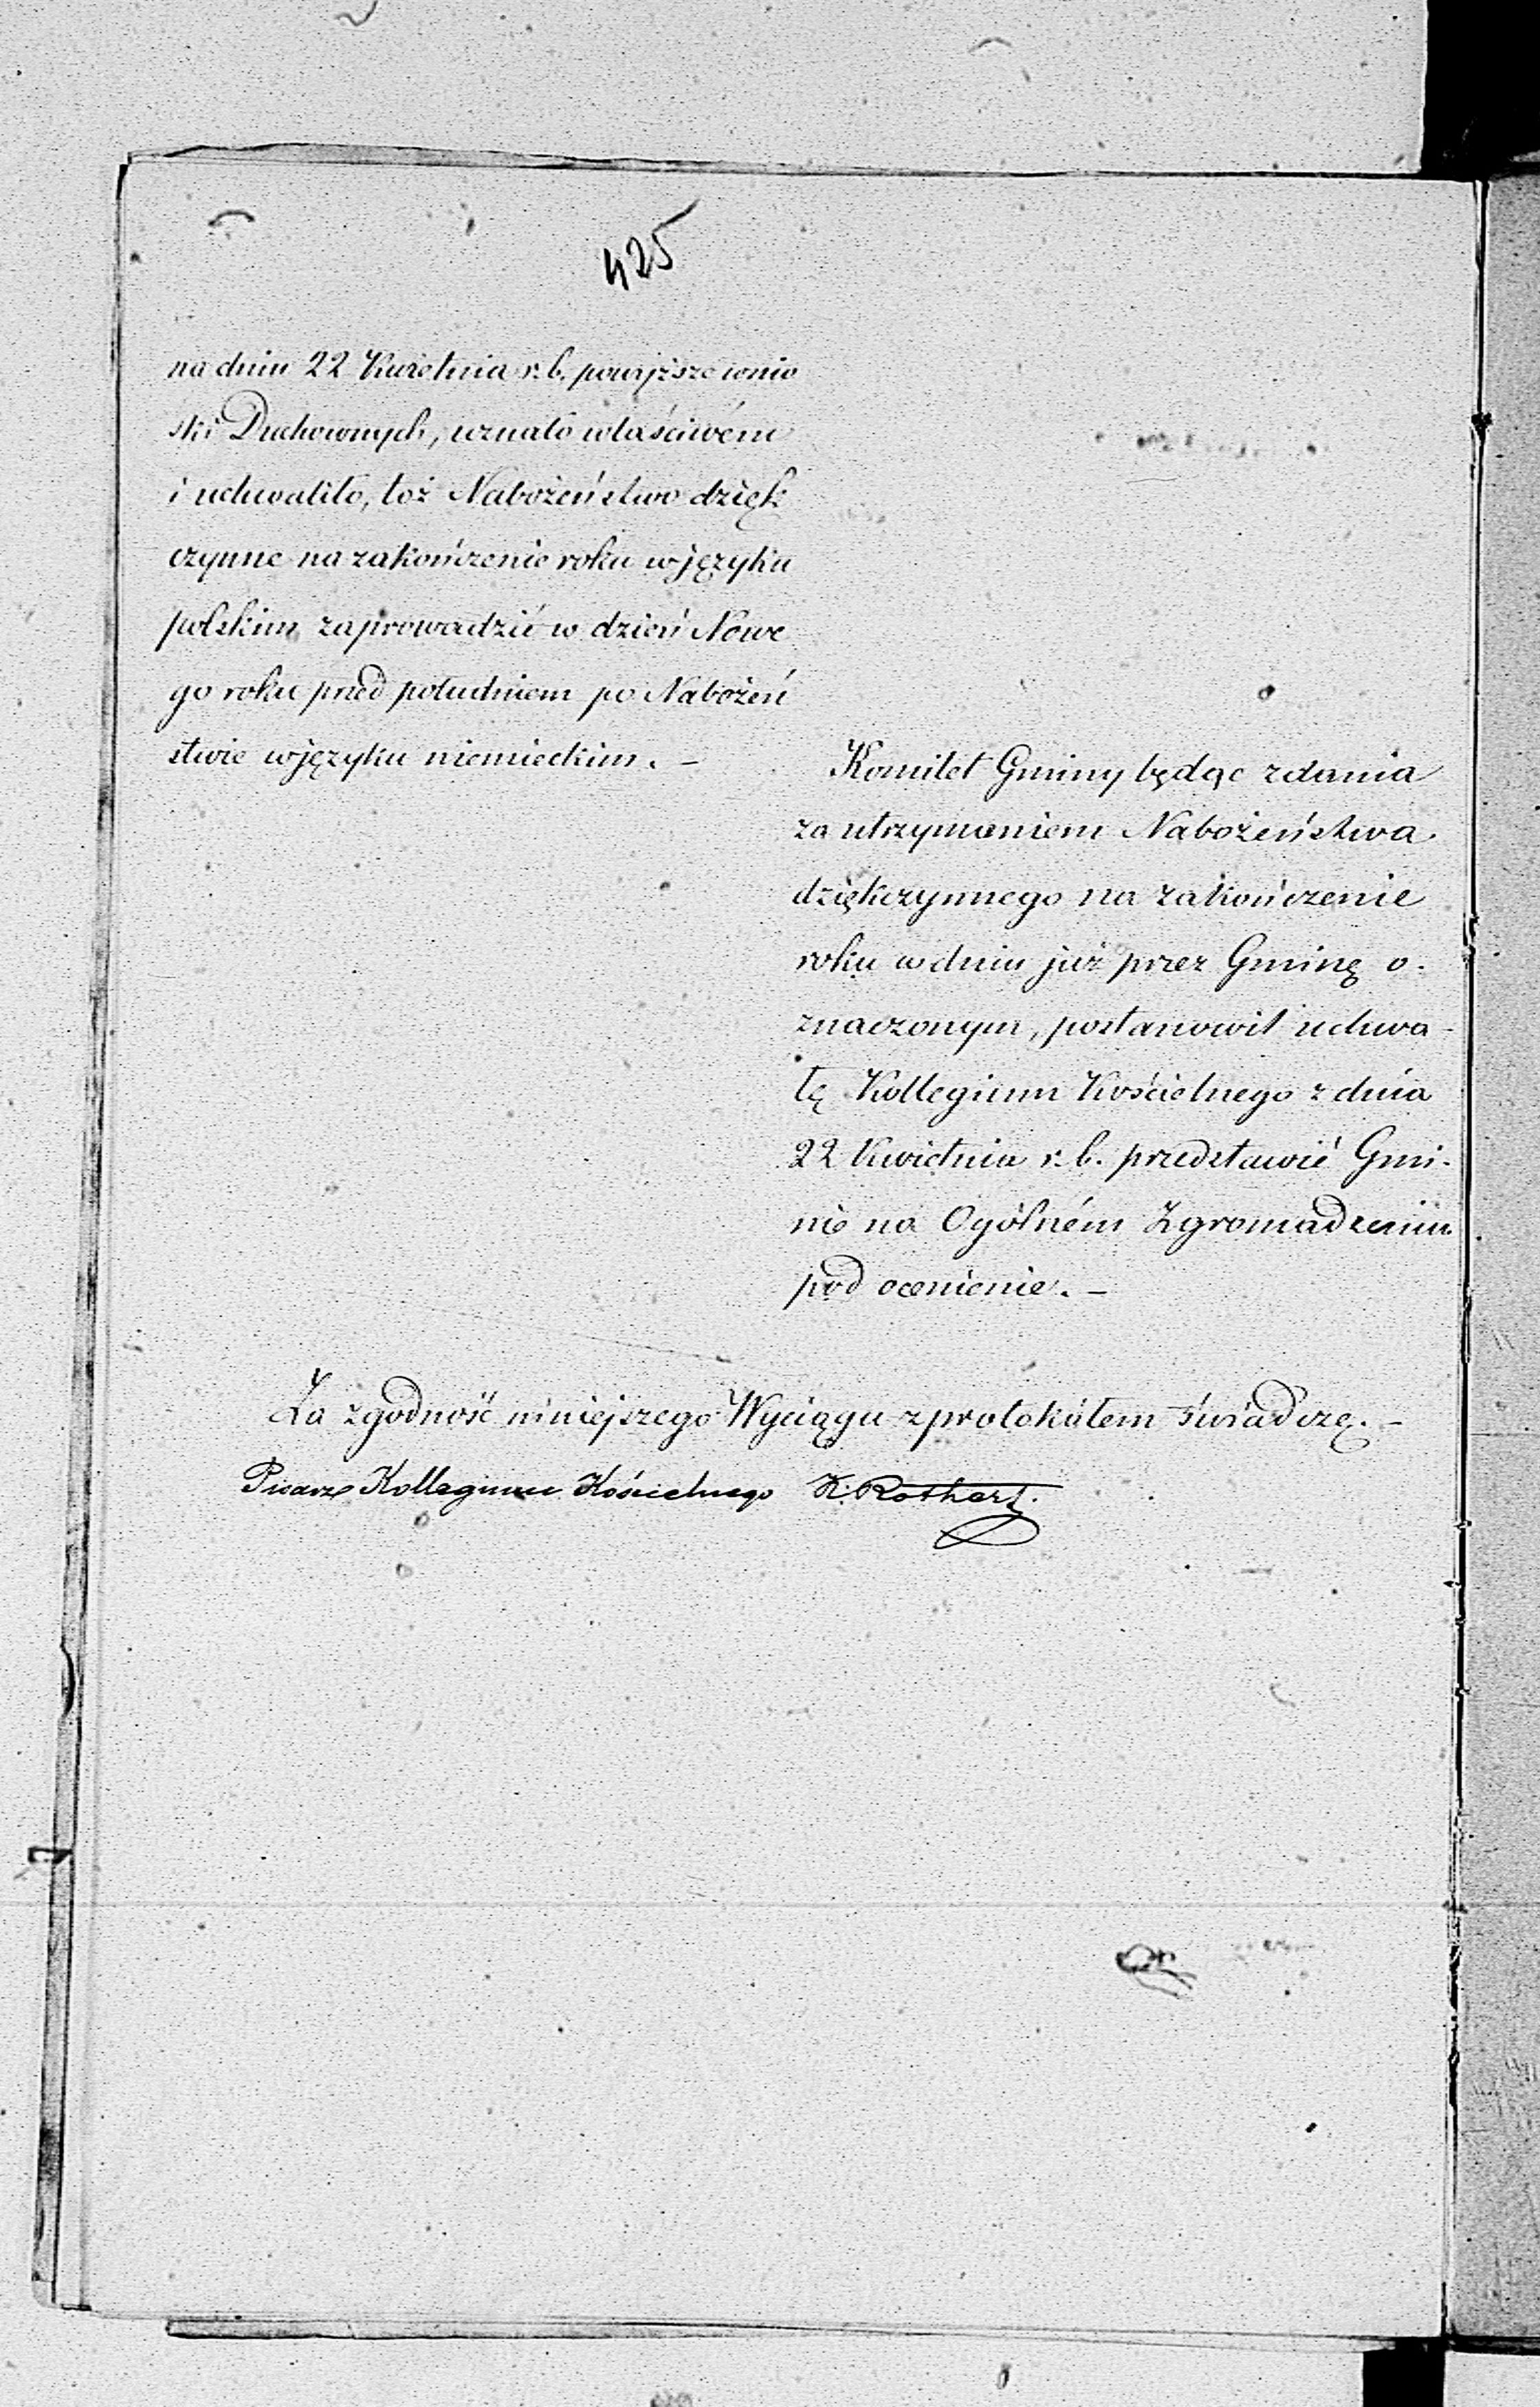 425
na dniu 22 Kwietnia r. b. powyższe wnio
ski Duchownych, uznało właściwém
i uchwaliło, toż Nabożeństwo dzięk
czynne na zakończenie roku w języku
polskim zaprowadzić w dzień Nowe
go roku przed południem po Nabożeń
stwie w języku niemieckim. –
Komitet Gminy będąc zdania
za utrzymaniem Nabożeństwa
dziękczynnego na zakończenie
roku w dniu już przez Gminę o-
znaczonym, postanowił uchwa-
łę Kollegium Kościelnego z dnia
22 Kwietnia r. b. przedstawić Gmi-
nie na Ogólném Zgromadzeniu
pod ocenienie. –
Za zgodność niniejszego Wyciągu z protokułem świadczę. –
Pisarz Kollegium Kościelnego K. Rothert.